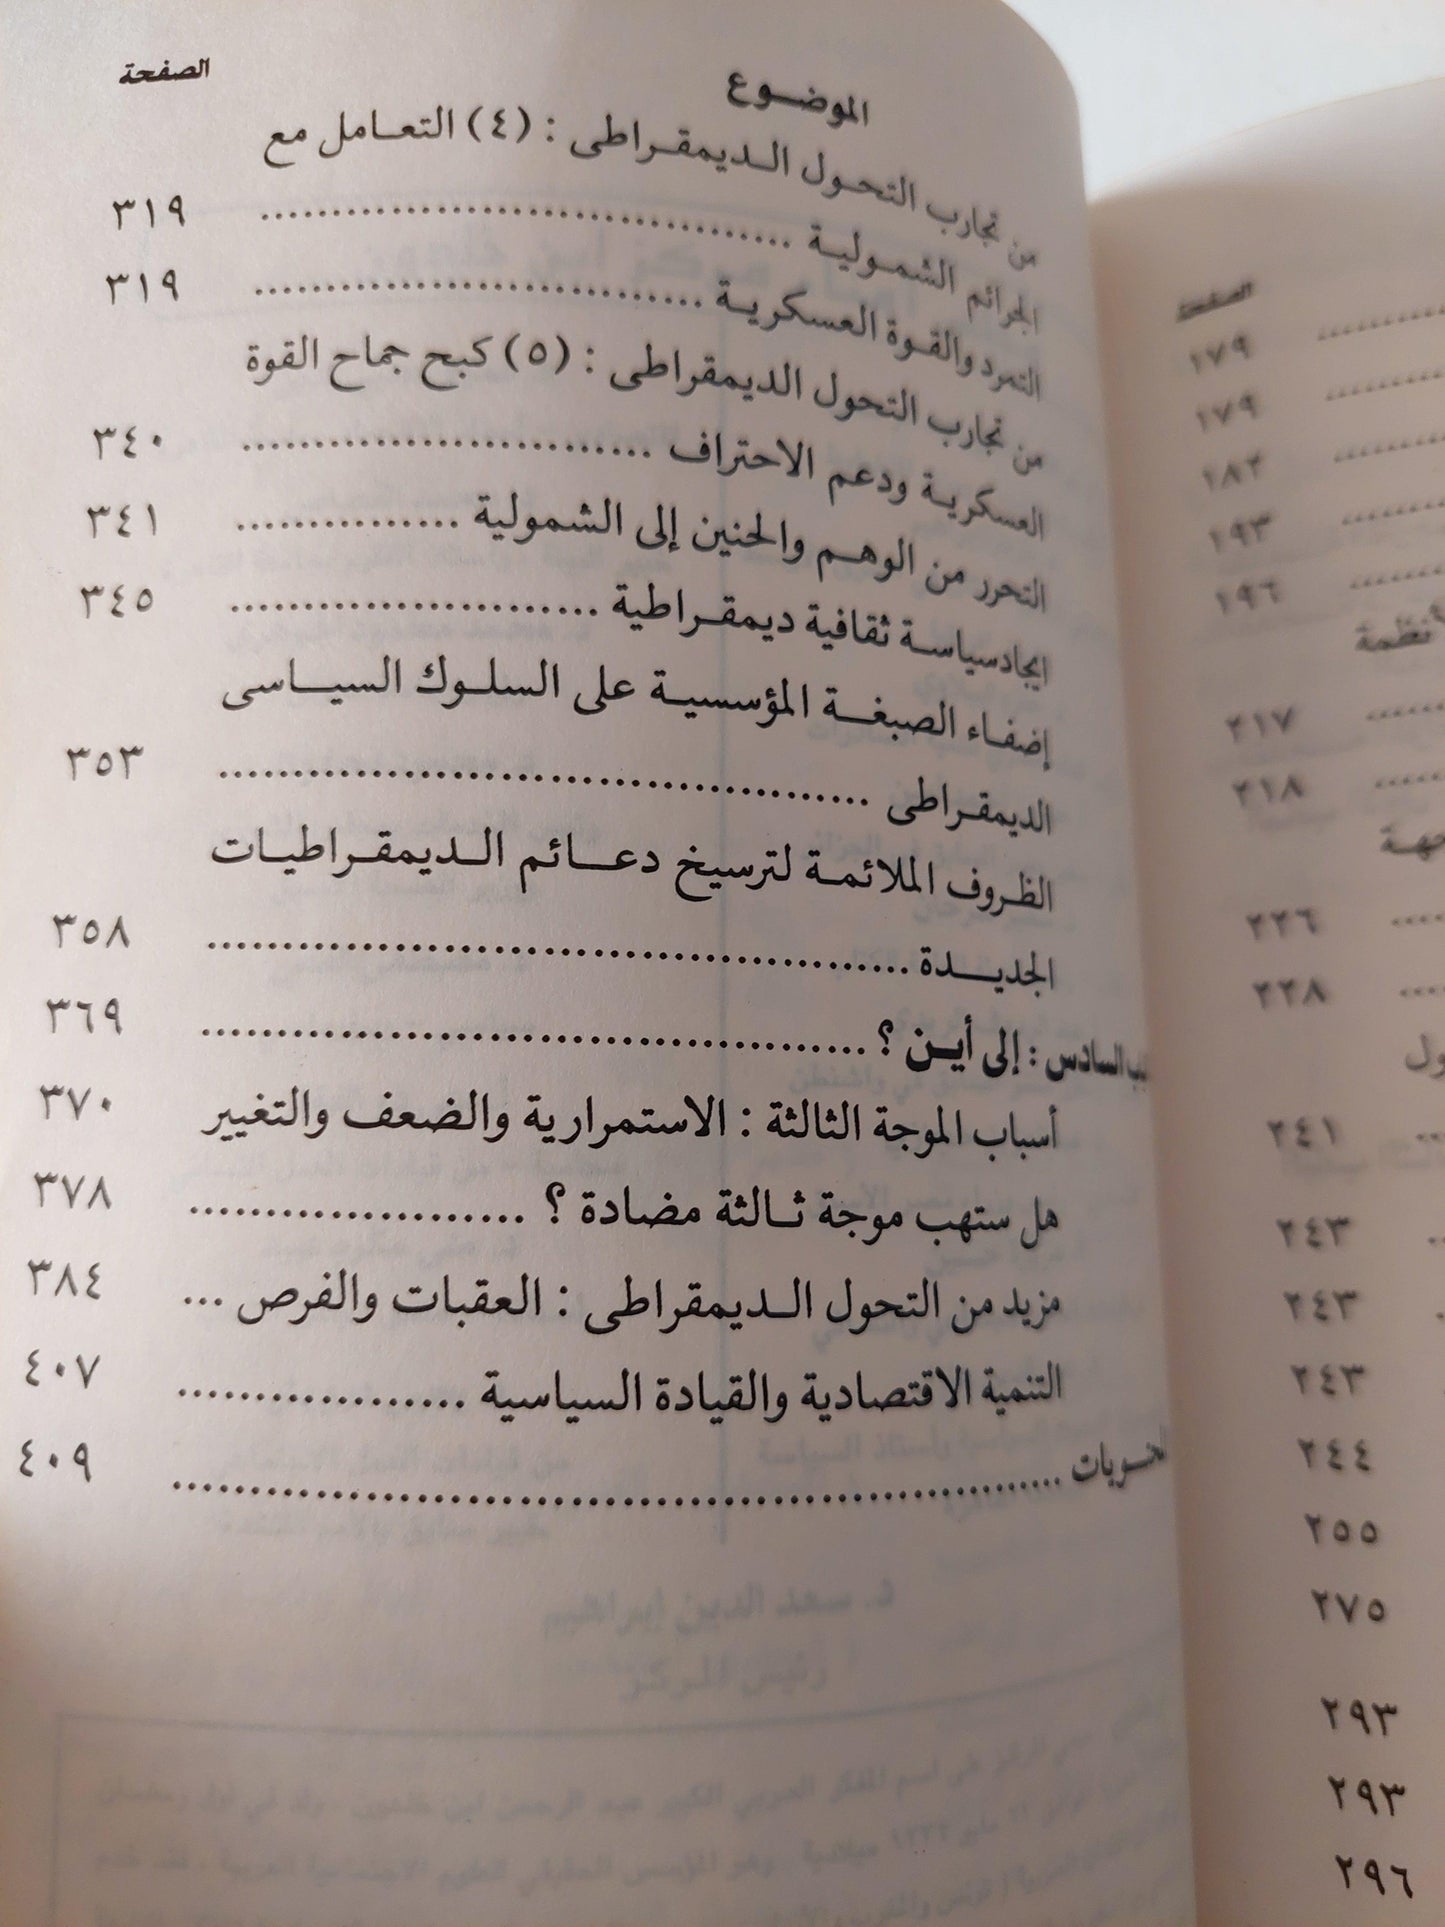 الموضوع الصفحة
من تجارب التحول الديمقراطى : (٤) التعامل مع
الجرائم الشمولية ..................................... ٣١٩
التمرد والقوة العسكرية ............................... ٣١٩
من تجارب التحول الديمقراطى : (٥) كبح جماح القوة
العسكرية ودعم الاحتراف ............................ ٣٤٠
التحرر من الوهم والحنين إلى الشمولية ............... ٣٤١
ايجاد سياسة ثقافية ديمقراطية ......................... ٣٤٥
إضفاء الصبغة المؤسسية على السلوك السياسى
الديمقراطى ............................................ ٣٥٣
الظروف الملائمة لترسيخ دعائم الديمقراطيات
الجديدة ............................................... ٣٥٨
السادس : إلى أين ؟ ............................................. ٣٦٩
أسباب الموجة الثالثة : الاستمرارية والضعف والتغيير ٣٧٠
هل ستهب موجة ثالثة مضادة ؟ ...................... ٣٧٨
مزيد من التحول الديمقراطى : العقبات والفرص ... ٣٨٤
التنمية الاقتصادية والقيادة السياسية ................... ٤٠٧
............................................................ ٤٠٩
الصفحة
١٧٩
١٧٩
١٨٢
١٩٣
١٩٦
٢١٧
٢١٨
٢٢٦
٢٢٨
٢٤١
٢٤٣
٢٤٣
٢٤٣
٢٤٤
٢٥٥
٢٧٥
٢٩٣
٢٩٣
٢٩٦